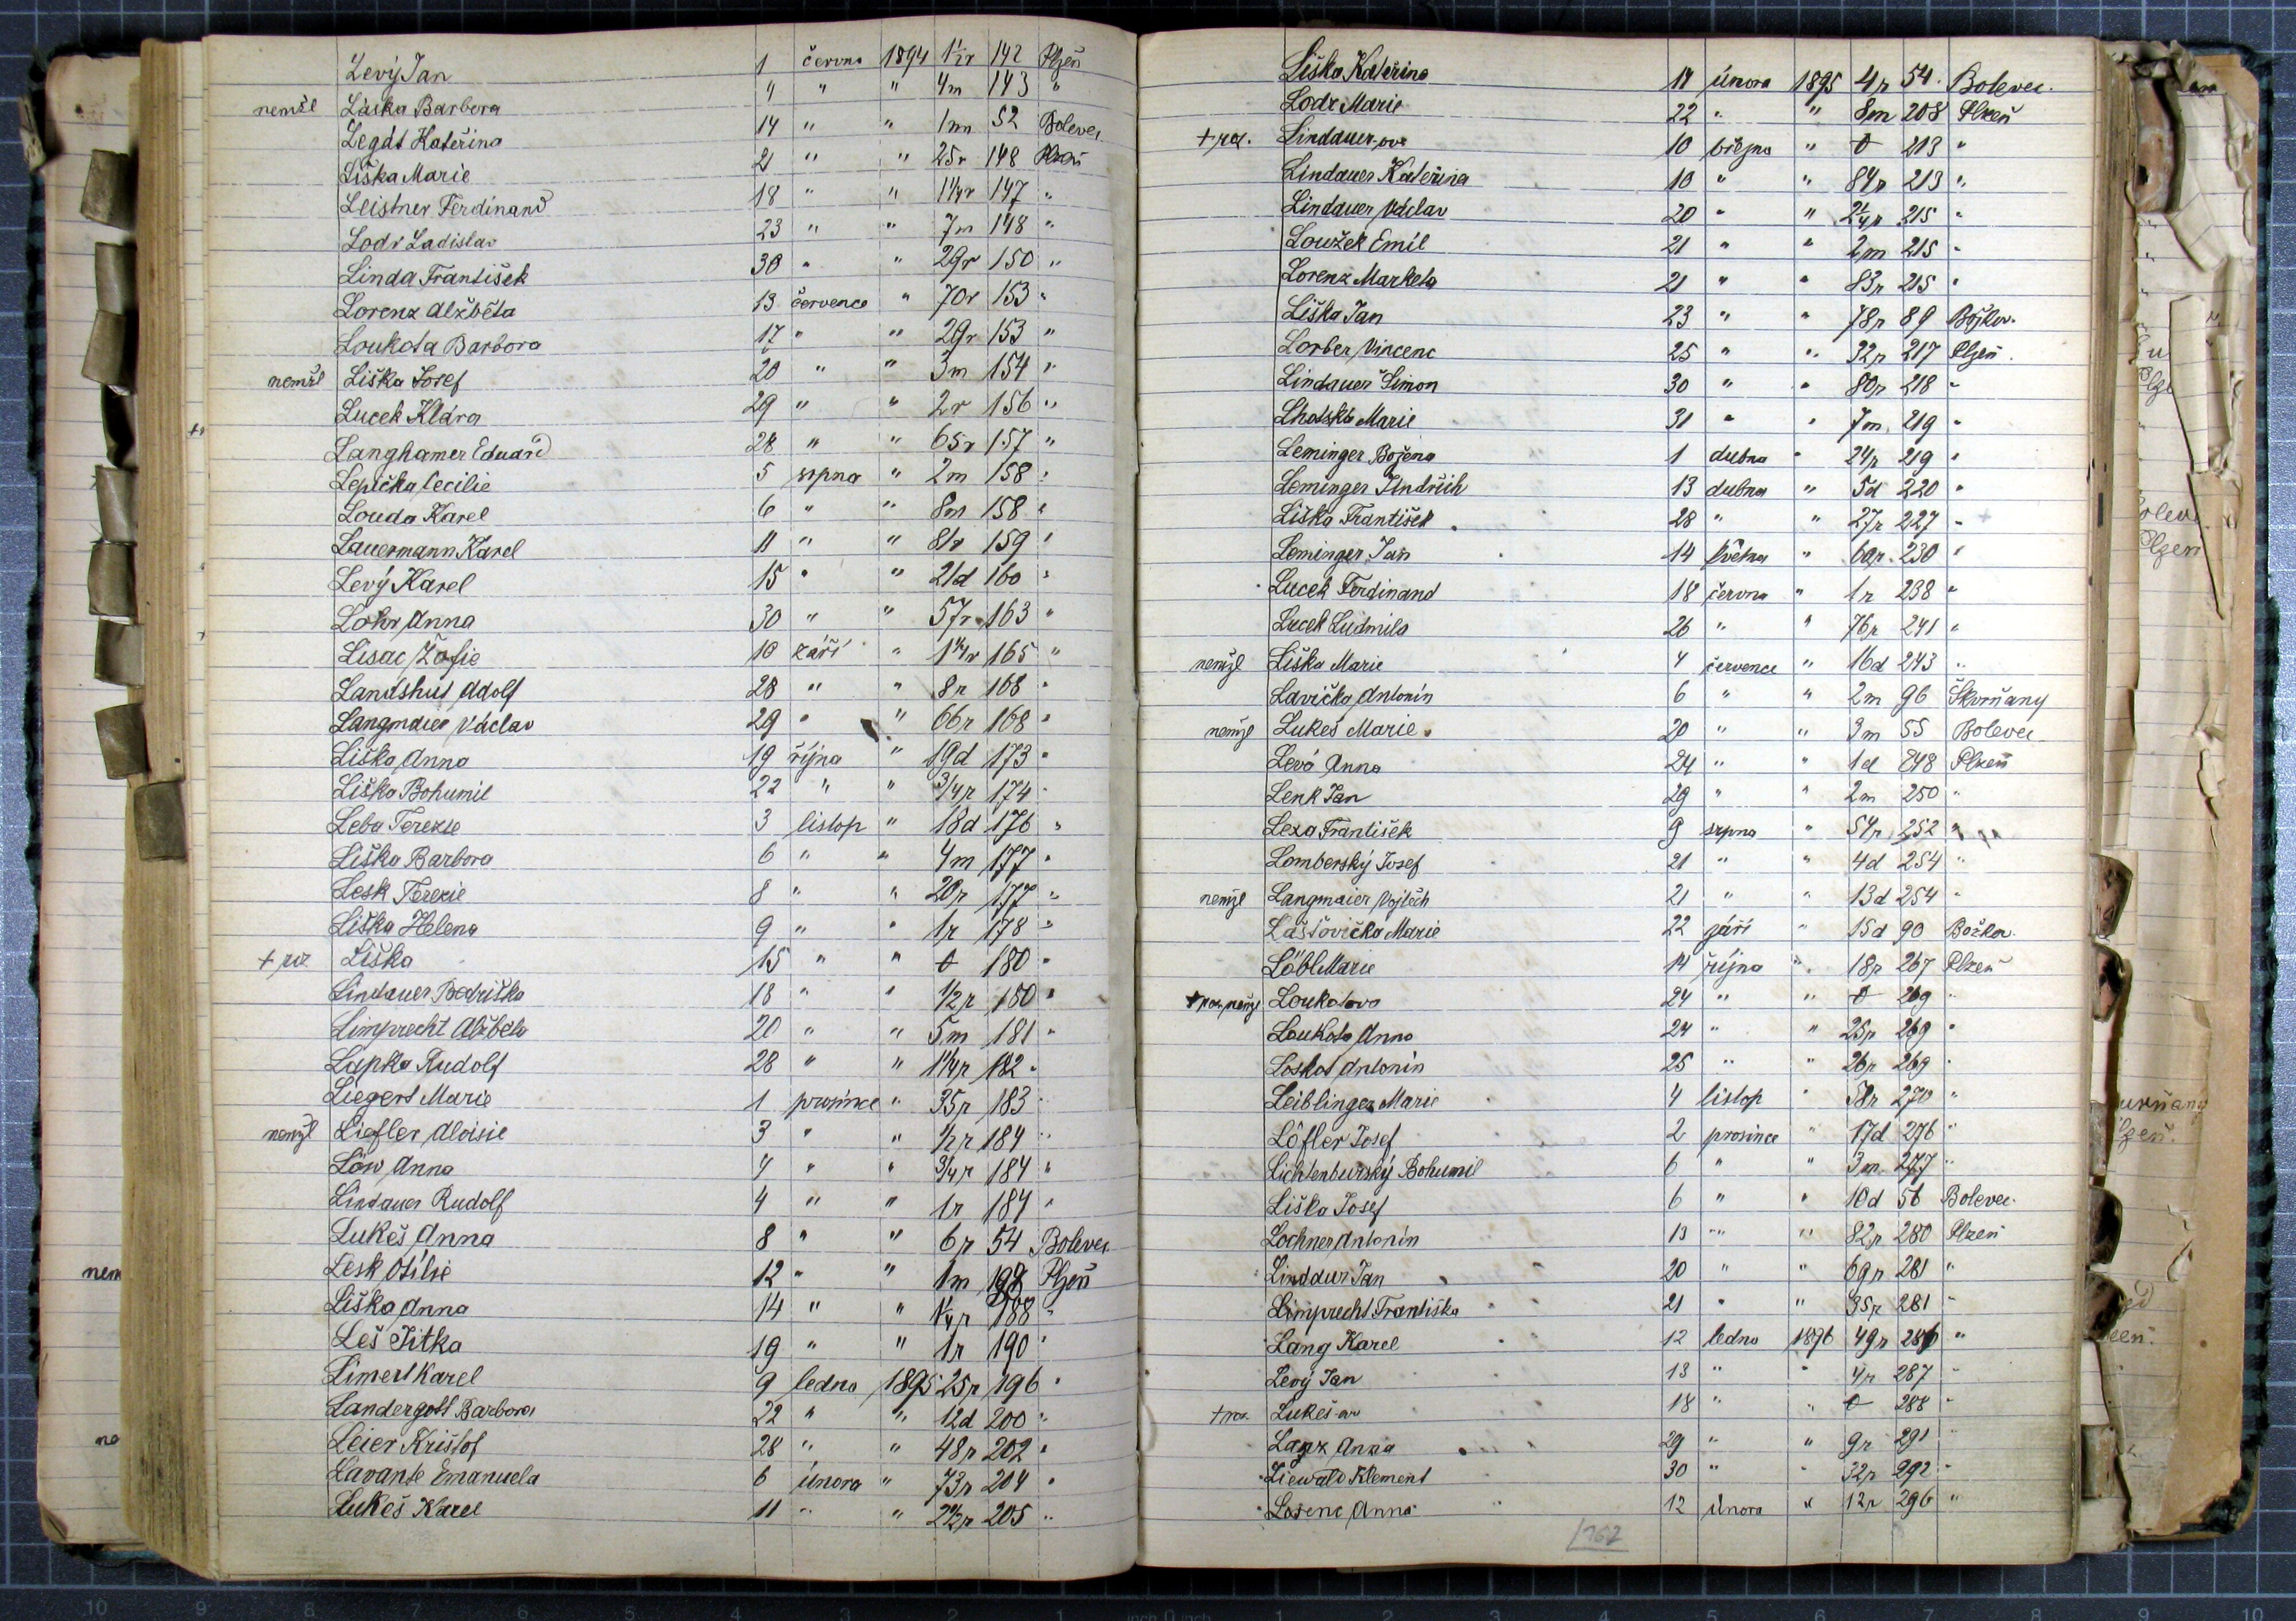 Levý Jan 1 června 1894 1½r 142 Plzeň
nemžl Láska Barbora 4 " " 4m 143 "
Legát Kateřina 14 " " 1m 52 Bolevec
Liška Marie 21 " " 25r 148 Plzeň
Leistner Ferdinand 18 " " 1¼r 147 "
Lodr Ladislav 23 " " 7m 148 "
Linda František 30 " " 29r 150 "
Lorenz Alžběta 13 července " 70r 153 "
Loukota Barbora 17 " " 29r 153 "
nemžl Liška Josef 20 " " 3m 154 "
Lucek Klára 29 " " 2r 156 "
Langhamer Eduard 28 " " 65r 157 "
Lepička Cecilie 5 srpna " 2m 158 "
Louda Karel 6 " " 8m 158 "
Lauermann Karel 11 " " 81r 159 "
Levý Karel 15 " " 21d 160 "
Lohr Anna 30 " " 57r 163 "
Lisac Žofie 10 září " 1¼r 165 "
Landshut Adolf 28 " " 8r 168 "
Langmaier Václav 29 " " 66r 168 "
Liška Anna 19 října " 19d 173 "
Liška Bohumil 22 " " 3/4r 174 "
Leba Terezie 3 listop " 18d 176 "
Liška Barbora 6 " " 4m 177 "
Lesk Terezie 8 " " 20r 177 "
Liška Helena 9 " " 1r 178 "
Liška 15 " " 0 180 "
Lindauer Bedřiška 18 " " 1/2r 180 "
Limprecht Alžběta 20 " " 5m 181 "
Lapka Rudolf 28 " " 1¼r 182 "
Liegert Marie 1 prosince " 35r 183 "
nemžl Liefler Aloisie 3 " " 1/2r 184 "
Löw Anna 4 " " 3/4r 184 "
Lindauer Rudolf 4 " " 1r 184 "
Lukeš Anna 8 " " 6r 54 Bolevec
Lesk Otilie 12 " " 1m Plzeň
Liška Anna 14 " " 188 "
Leš Jitka 19 " " 1r 190 "
Limerl Karel 9 ledna 1895 25r 196 "
Landergott Barbora 22 " " 12d 200 "
Leier Krištof 28 " " 48r 202 "
Lavante Emanuela 6 února " 73r 204 "
Lukeš Karel 11 " " 2½r 205 "
Liška Kateřina 17 února 1895 4r 54 Bolevec
Lodr Marie 22 " " 8m 208 Plzeň
Lindauer-ova 10 března " 0 213 "
Lindauer Kateřina 10 " " 84r 213 "
Lindauer Václav 20 " " 2¼r 215 "
Loužek Emil 21 " " 2m 215 "
Lorenz Marketa 21 " " 83r 215 "
Liška Jan 23 " " 78r 89 Božkov
Lorber Vincenc 25 " " 32r 217 Plzeň
Lindauer Šimon 30 " " 80r 218 "
Lhotská Marie 31 " " 7m 219 "
Leminger Božena 1 dubna " 24r 219 "
Leminger Jindřich 13 dubna " 5d 220 "
Liška František 28 " " 27r 227 "
Leminger Jan 14 května " 69r 230 "
Lucek Ferdinand 18 června " 1r 238 "
Lucek Ludmila 26 " " 76r 241 "
nemžl Liška Marie 4 července " 16d 243 "
Lavička Antonín 6 " " 2m 96 Škvrňany
nemžl Lukeš Marie 20 " " 3m 55 Bolevec
Levá Anna 24 " " 1d 248 Plzeň
Lenk Jan 29 " " 2m 250 "
Lexa František 9 srpna " 54r 252 "
Lomberský Josef 21 " " 4d 254 "
nemžl Langmaier Vojtěch 21 " " 13d 254 "
Laštovička Marie 22 září " 15d 90 Božkov
Löbl Marie 14 října " 18r 267 Plzeň
Loukotova 24 " " 0 269 "
Loukota Anna 24 " " 25r 269 "
Loskot Antonín 25 " " 26r 269 "
Leiblinger Marie 4 listop " 58r 270 "
Löfler Josef 2 prosince " 17d 276 "
Lichtenburský Bohumil 6 " " 3m 277 "
Liška Josef 6 " " 10d 56 Bolevec
Lochner Antonín 13 " " 82r 280 Plzeň
Lindaur Jan 20 " " 69r 281 "
Limprecht Františka 21 " " 35r 281 "
Lang Karel 12 ledna 1896 49r 286 "
Levý Jan 13 " " 4r 287 "
Lukeš-ov 18 " " 0 288 "
Lanz Anna 29 " " 9r 291 "
Liewald Klement 30 " " 32r 292 "
Lorenc Anna 12 února " 12r 296 "